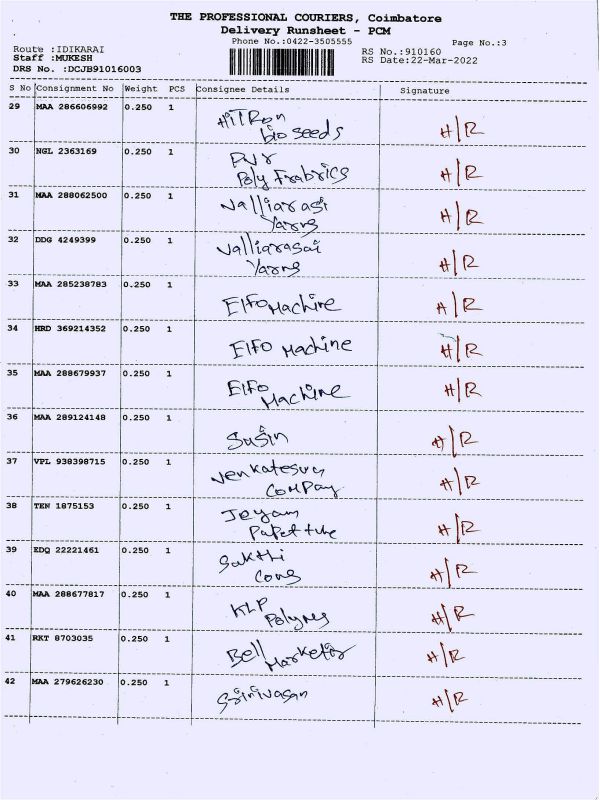 THE PROFESSIONAL COURIERS, Coimbatore
Delivery Runsheet - PCM
Phone No.:0422-3505555 Page No.:3
Route :IDIKARAI RS No.:910160
Staff :MUKESH RS Date:22-Mar-2022
DRS No. :DCJB91016003
S No Consignment No Weight PCS Consignee Details Signature
29 MAA 286606992 0.250 1 HiTRon H/R
bio seeds
30 NGL 2363169 0.250 1 H/R
Poly Frabrics
31 MAA 288062500 0.250 1 Valliarasi H/R
Yarns
32 DDG 4249399 0.250 1 Valliarasai H/R
Yarns
33 MAA 285238783 0.250 1 ElFo Machine H/R
34 HRD 369214352 0.250 1 ElFo Machine H/R
35 MAA 288679937 0.250 1 ElFo H/R
Machine
36 MAA 289124148 0.250 1 Susin H/R
37 VPL 938398715 0.250 1 H/R
ComPay
38 TEN 1875153 0.250 1 Jeyam H/R
39 EDQ 22221461 0.250 1 Sakthi H/R
Cons
40 MAA 288677817 0.250 1 KLP H/R
41 RKT 8703035 0.250 1 Bell H/R
42 MAA 279626230 0.250 1 Srinivasan H/R